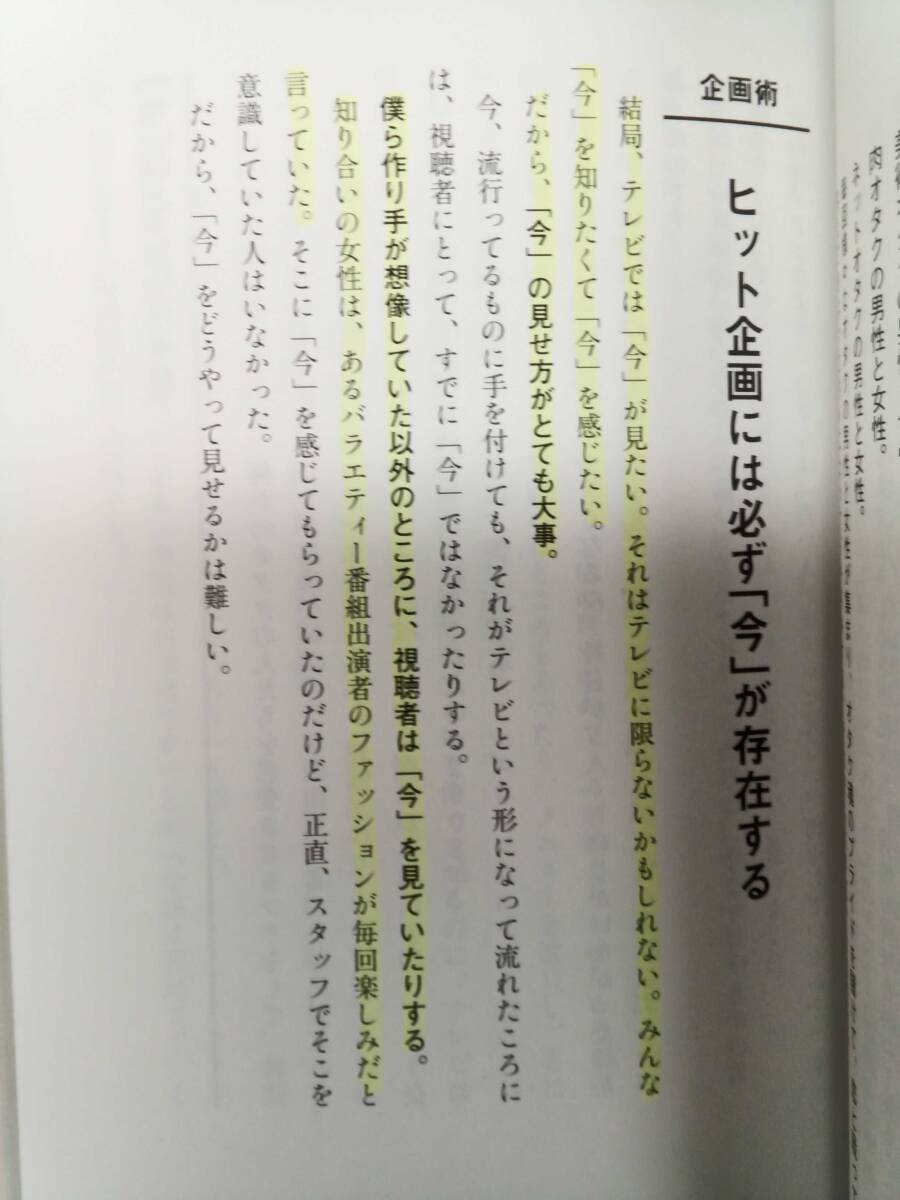 肉オタクの男性と女性。
ネットオタクの男性と女性。
企画術
ヒット企画には必ず「今」が存在する
結局、テレビでは「今」が見たい。それはテレビに限らないかもしれない。みんな
「今」を知りたくて「今」を感じたい。
だから、「今」の見せ方がとても大事。
今、流行ってるものに手を付けても、それがテレビという形になって流れたころに
は、視聴者にとって、すでに「今」ではなかったりする。
僕ら作り手が想像していた以外のところに、視聴者は「今」を見ていたりする。
知り合いの女性は、あるバラエティー番組出演者のファッションが毎回楽しみだと
言っていた。そこに「今」を感じてもらっていたのだけど、正直、スタッフでそこを
意識していた人はいなかった。
だから、「今」をどうやって見せるかは難しい。